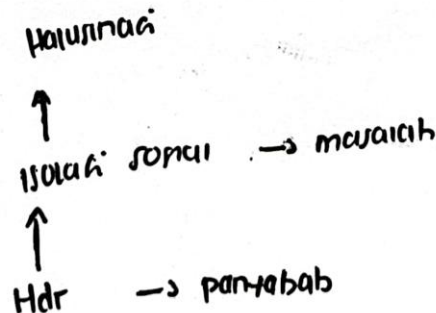 Halusinasi
↑
Isolasi sosial → masalah
↑
Hdr → panyabab